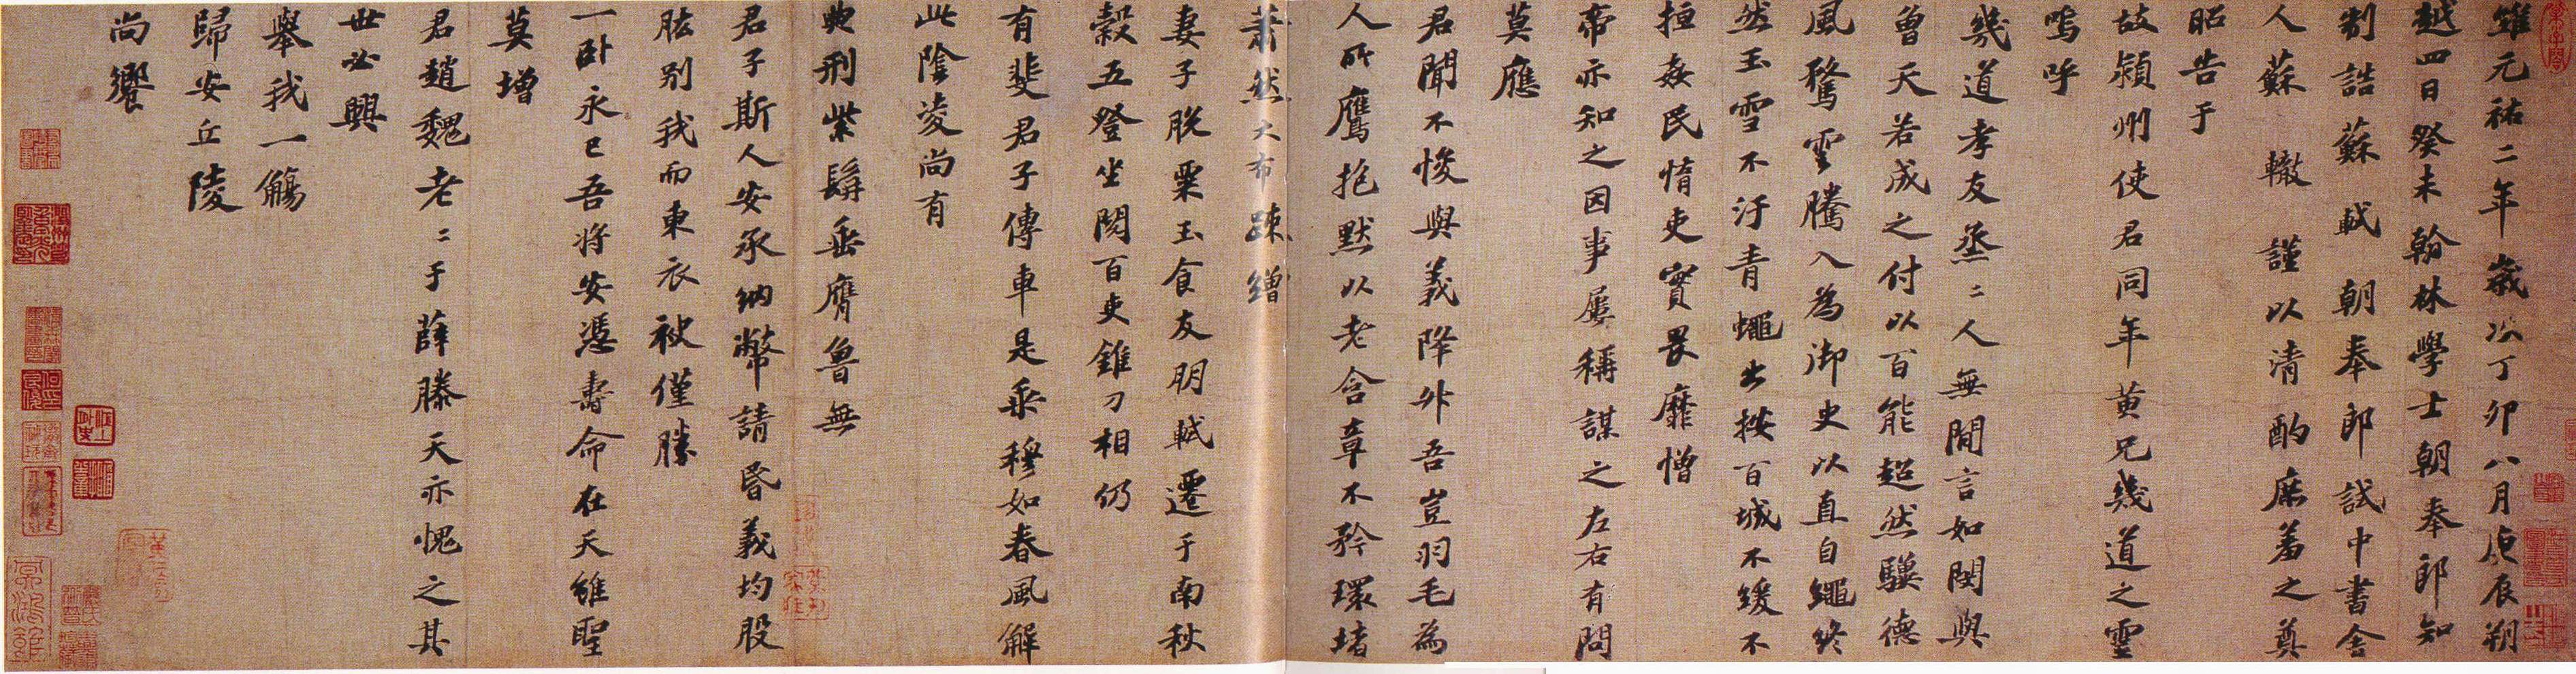 維元祐二年歲次丁卯八月庚辰朔
越四日癸未翰林學士朝奉郎知
制誥蘇軾朝奉郎試中書舍
人蘇轍謹以清酌庶羞之奠
昭告于
故潁州使君同年黃兄幾道之靈
嗚呼
幾道孝友烝〻人無間言如閔與
曾天若成之付以百能超然驥德
風騖雲騰入為御史以直自繩終
然玉雪不汙青蠅出按百城不緩不
搄姦民惰吏實畏靡憎
帝亦知之因事屢稱謀之左右有問
莫應
君聞不悛與義降升吾豈羽毛為
人所鷹抱默以老含章不矜環堵
蕭然大布疎繒
妻子脫粟玉食友朋軾遷于南秋
穀五登坐閱百吏錐刀相仍
有斐君子傳車是乘穆如春風解
此陰凌尚有
典刑紫髯垂膺魯無
君子斯人安承納幣請昏義均股
肱別我而東衣袂僅勝
一卧永已吾將安憑壽命在天雖聖
莫增
君趙魏老〻于薛滕天亦愧之其
世必興
舉我一觴
歸安丘陵
尚饗